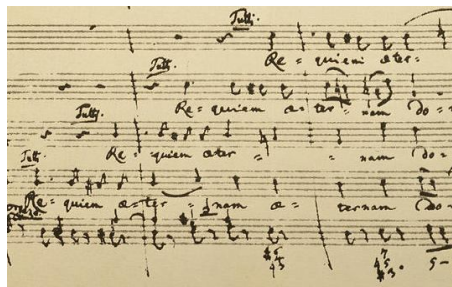 Tutti.
Re= quiem æter-
Tutti.
Re= quiem æ= ter= nam do=
Tutti.
Re= quiem æter = nam do=
Tutti.
Re= quiem æ=ter= nam æ= ternam do=